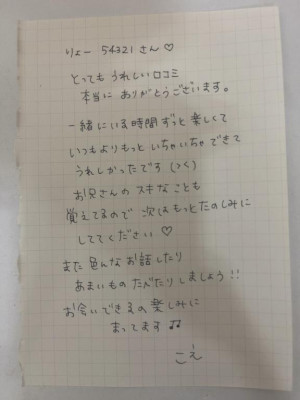 りょー 54321 さん ♡
とっても うれしい 口コミ
本当に ありがとうございます。
一緒にいる時間ずっと楽しくて
いつもよりもっと いちゃいちゃできて
うれしかったです (>く)
お兄さんの スキなことも
覚えてるので 次はもっとたのしみに
しててください ♡
また 色んな お話したり
あまいもの たべたり しましょう!!
お会いできるの 楽しみに
まってます ♫
こえ